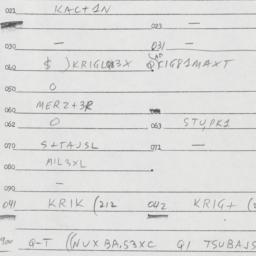 021 KACT1N
023 —
030 — 031 —
040 $ )KRIGL 3X QKIG81MAXT
050 O
060 MERZ+3R
062 O 063 STU,PK1
070 S+TAJ3L 072 —
080 MIL3XL
090 —
041 KRIK (212 042 KRIG+ (2
900 Q-T ((NUXBA,S3XC Q1 TSUBAJS